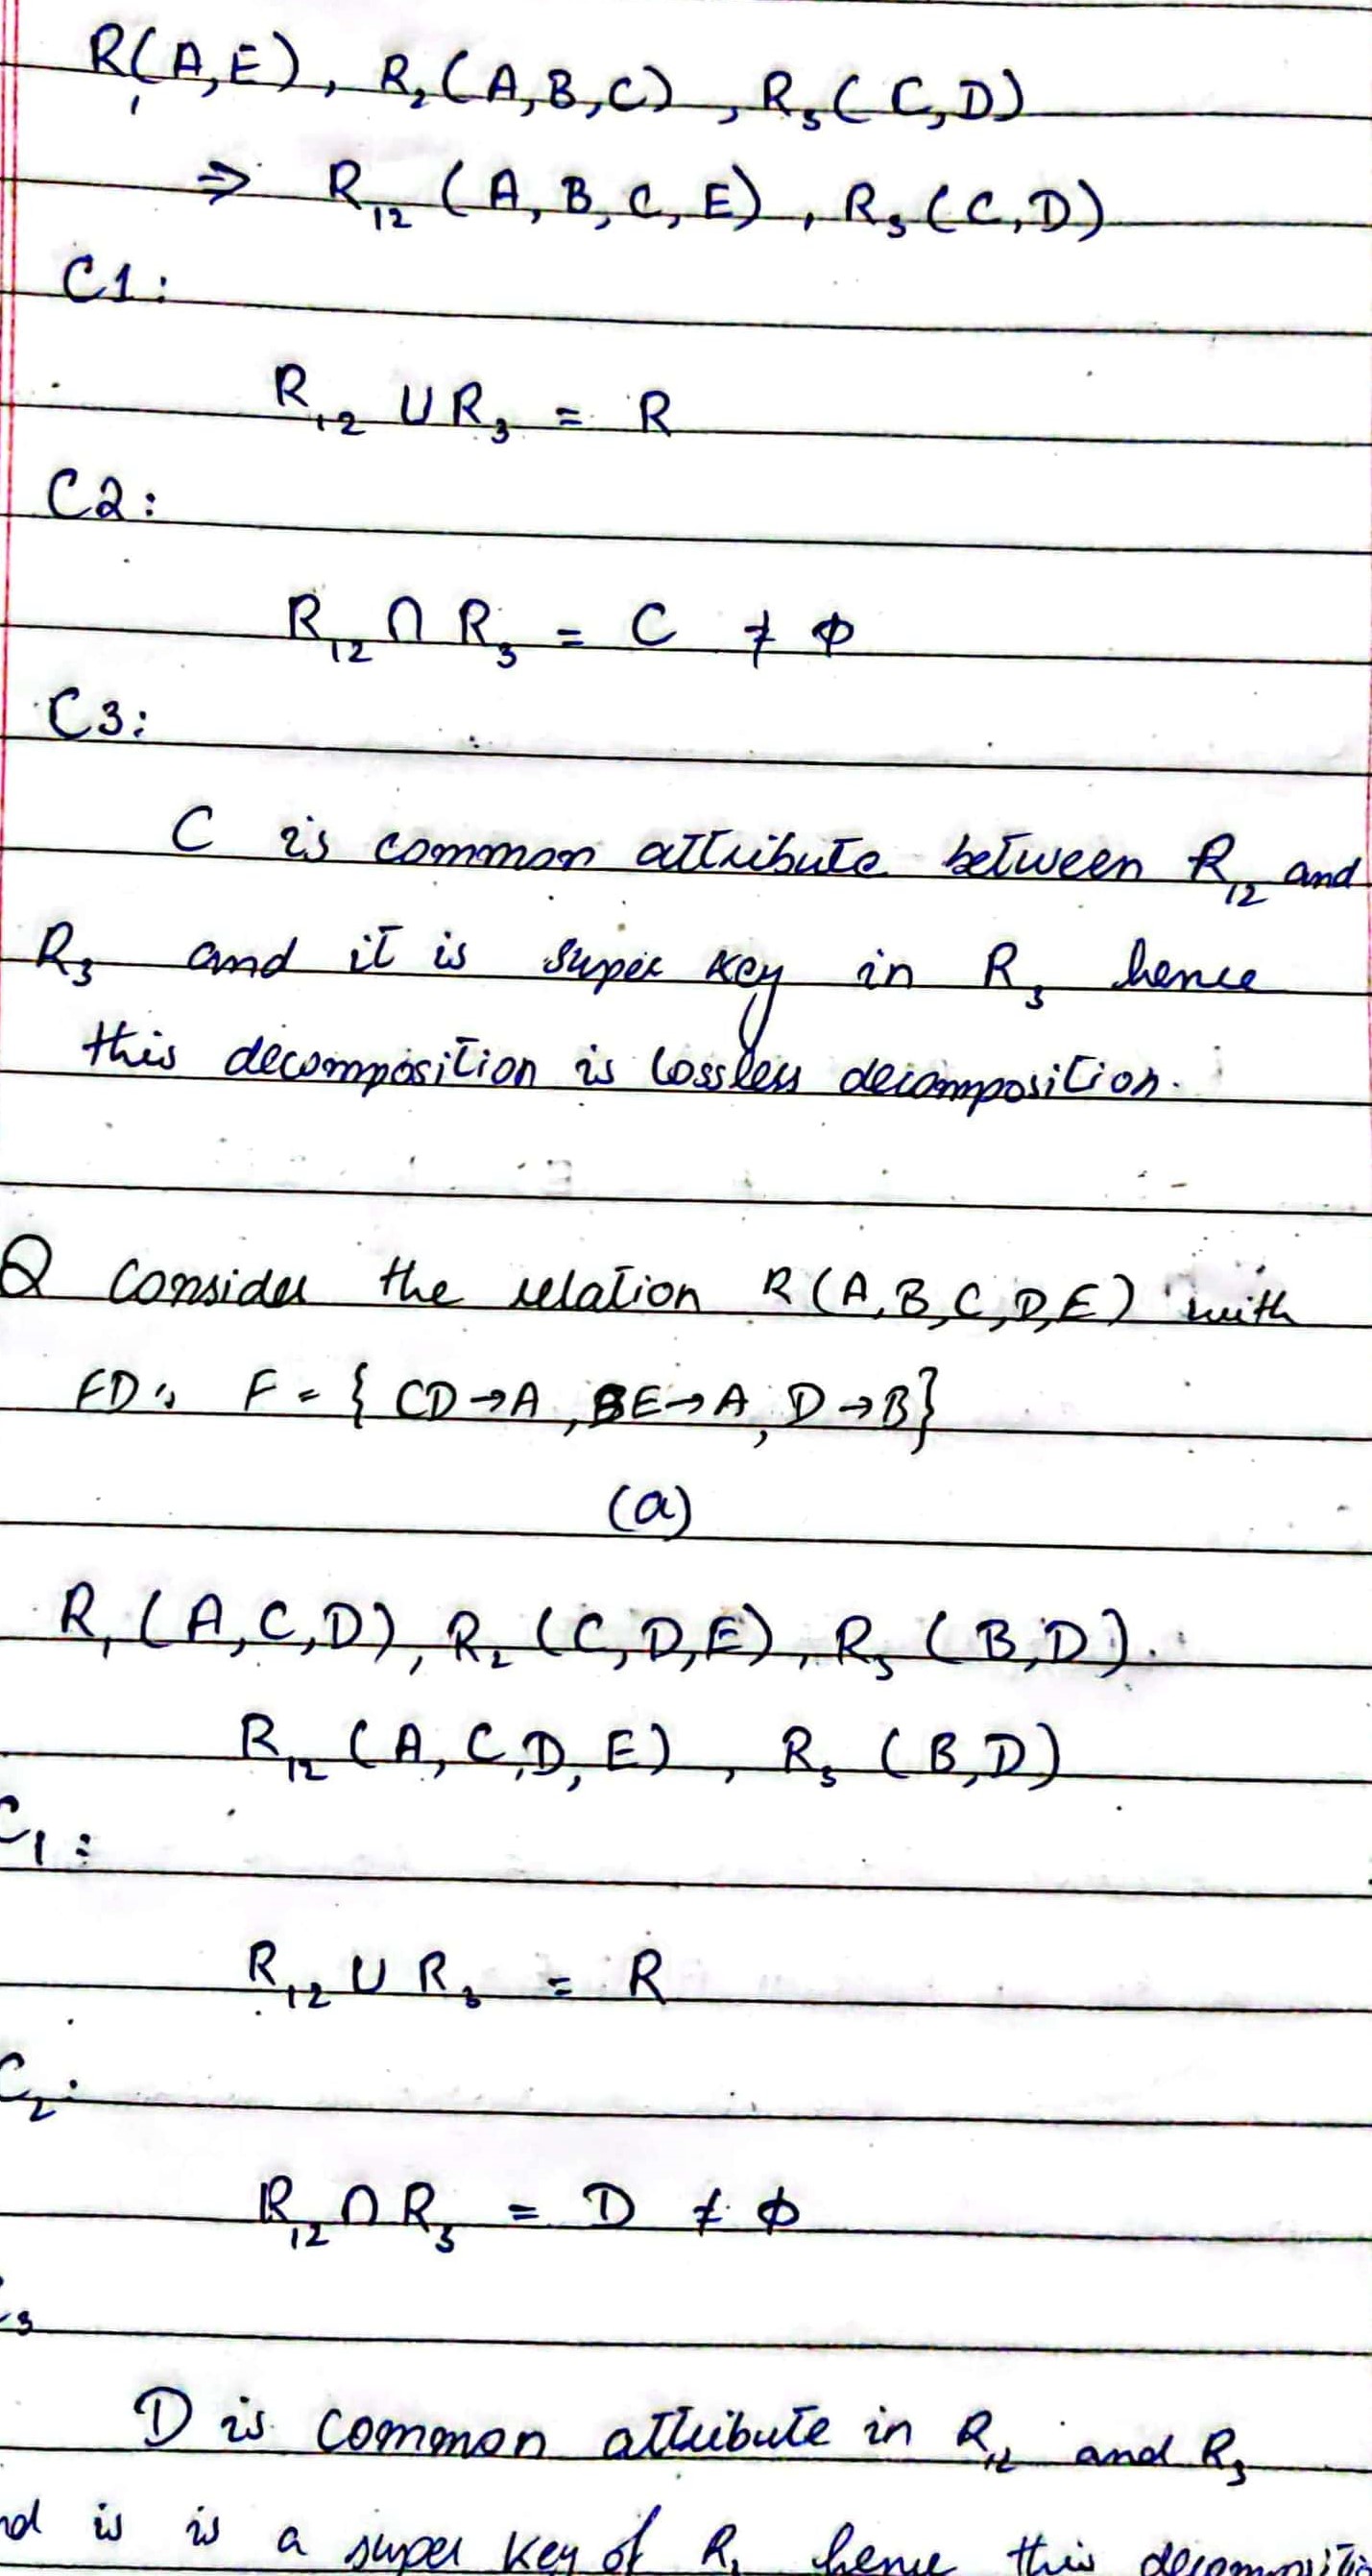 R₁(A,E), R₂(A,B,C), R₃(C,D)
⇒ R₁₂(A,B,C,E), R₃(C,D)
C1:
R₁₂ ∪ R₃ = R
C2:
R₁₂ ∩ R₃ = C ≠ ϕ
C3:
C is common attribute between R₁₂ and
R₃ and it is super key in R₃ hence
this decomposition is lossless decomposition.
Q consider the relation R(A,B,C,D,E) with
FD's F = { CD→A, BE→A, D→B}
(a)
R₁(A,C,D), R₂(C,D,E), R₃(B,D).
R₁₂(A,C,D,E), R₃(B,D)
C₁:
R₁₂ ∪ R₃ = R
C₂:
R₁₂ ∩ R₃ = D ≠ ϕ
C₃
D is common attribute in R₁₂ and R₃
is is a super key of hence this